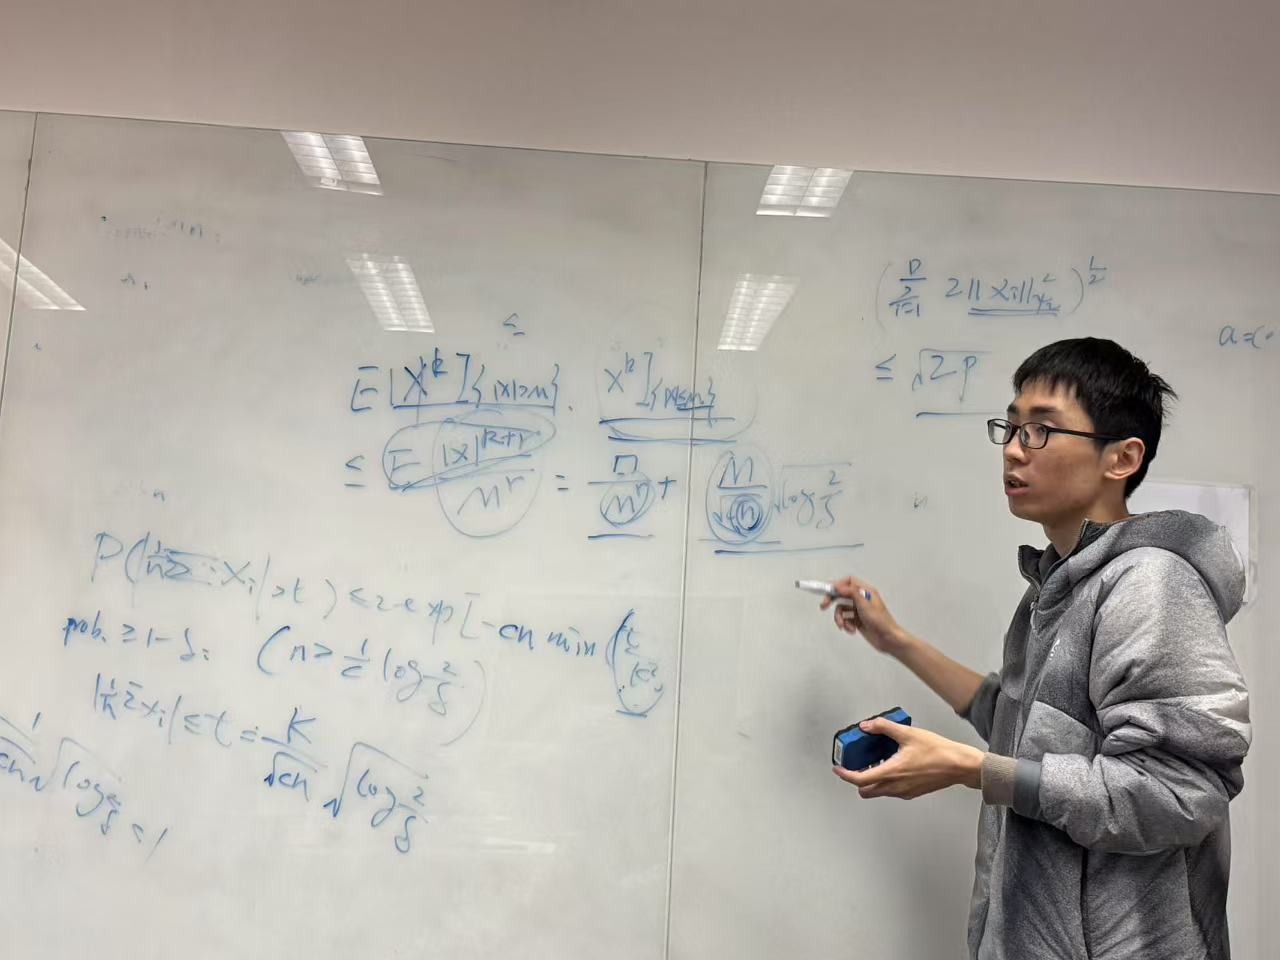 ≤
E[X^k]{|x|>M} . X^k]{|x|≤M}
≤ E|X|^{k+r} / M^r = □/M^r + M/√(cn) √(log 2/δ)
P(|1/n Σ X_i| >t) ≤ 2 exp[-cn min(
prob. ≥ 1-δ: (n > 1/c log 2/δ)
|1/n Σ X_i| ≤ t = K/√(cn) √(log 2/δ)
√(log 2/δ) < 1
(Σ_{i=1}^{p} 2||X_i||²_{ψ2})^{1/2}
≤ √(2p)
a=(